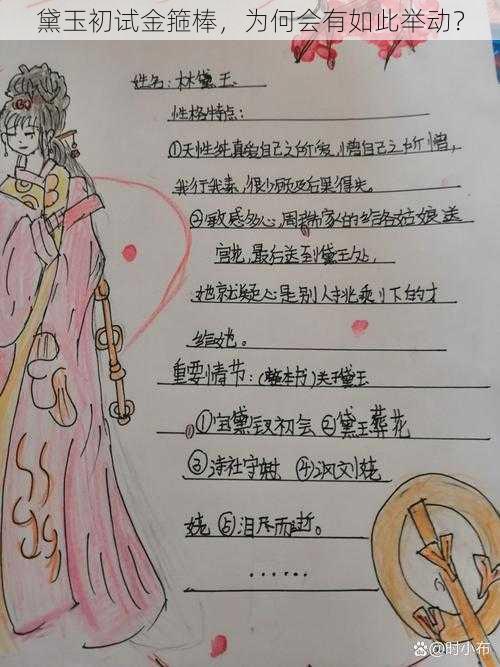 黛玉初试金箍棒，为何会有如此举动？
姓名：林黛玉
性格特点：
①天性纯真爱自己之所爱，憎自己之所憎，
我行我素，很少顾及后果得失。
②敏感多心，周瑞家的给各姑娘送
宫花，最后送到黛玉处，
她就疑心是别人挑乘刂下的才
给她。
重要情节：(整本书)关于黛玉
①宝黛钗初会 ②黛玉葬花
③诗社夺魁 ④讽刘姥
姥 ⑤泪尽而逝。
……
时小布